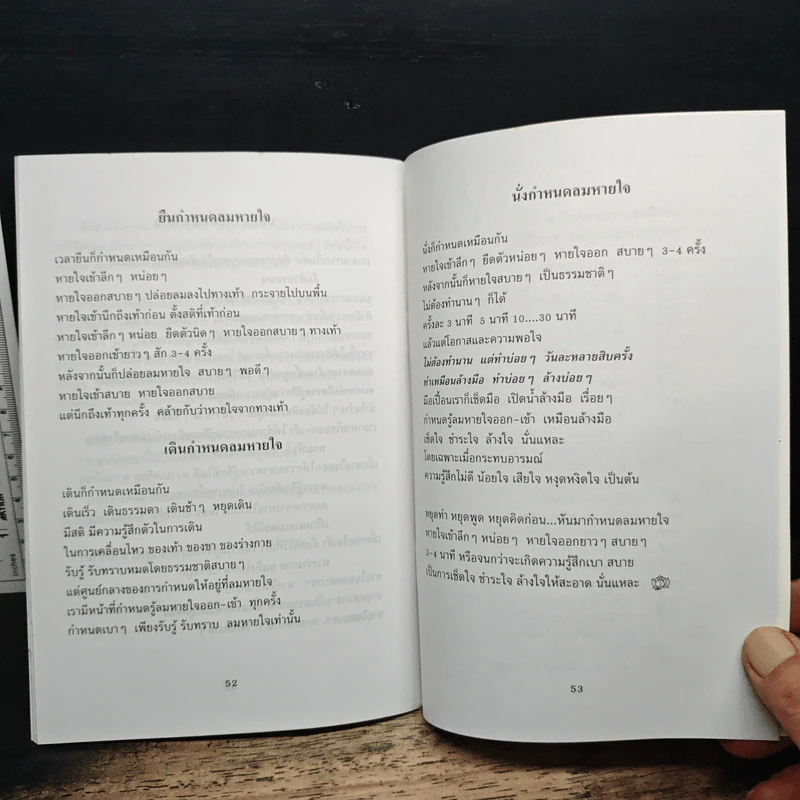 ยืนกำหนดลมหายใจ
เวลายืนก็กำหนดเหมือนกัน
หายใจเข้าลึกๆ หน่อยๆ
หายใจออกสบายๆ ปล่อยลมลงไปทางเท้า กระจายไปบนพื้น
หายใจเข้านึกถึงเท้าก่อน ตั้งสติที่เท้าก่อน
หายใจเข้าลึกๆ หน่อย ยืดตัวนิดๆ หายใจออกสบายๆ ทางเท้า
หายใจออกเข้ายาวๆ สัก 3-4 ครั้ง
หลังจากนั้นก็ปล่อยลมหายใจ สบายๆ พอดีๆ
หายใจเข้าสบาย หายใจออกสบาย
แต่นึกถึงเท้าทุกครั้ง คล้ายกับว่าหายใจจากทางเท้า
เดินกำหนดลมหายใจ
เดินก็กำหนดเหมือนกัน
เดินเร็ว เดินธรรมดา เดินช้าๆ หยุดเดิน
มีสติ มีความรู้สึกตัวในการเดิน
ในการเคลื่อนไหว ของเท้า ของขา ของร่างกาย
รับรู้ รับทราบหมดโดยธรรมชาติสบายๆ
แต่ศูนย์กลางของการกำหนดให้อยู่ที่ลมหายใจ
เรามีหน้าที่กำหนดรู้ลมหายใจออก-เข้า ทุกครั้ง
กำหนดเบาๆ เพียงรับรู้ รับทราบ ลมหายใจเท่านั้น
52
นั่งกำหนดลมหายใจ
นั่งก็กำหนดเหมือนกัน
หายใจเข้าลึกๆ ยืดตัวหน่อยๆ หายใจออก สบายๆ 3-4 ครั้ง
หลังจากนั้นก็หายใจสบายๆ เป็นธรรมชาติๆ
ไม่ต้องทำนานๆ ก็ได้
ครั้งละ 3 นาที 5 นาที 10....30 นาที
แล้วแต่โอกาสและความพอใจ
ไม่ต้องทำนาน แต่ทำบ่อยๆ วันละหลายสิบครั้ง
ทำเหมือนล้างมือ ทำบ่อยๆ ล้างบ่อยๆ
มือเปื้อนเราก็เช็ดมือ เปิดน้ำล้างมือ เรื่อยๆ
กำหนดรู้ลมหายใจออก-เข้า เหมือนล้างมือ
เช็ดใจ ชำระใจ ล้างใจ นั่นแหละ
โดยเฉพาะเมื่อกระทบอารมณ์
ความรู้สึกไม่ดี น้อยใจ เสียใจ หงุดหงิดใจ เป็นต้น
หยุดทำ หยุดพูด หยุดคิดก่อน...หันมากำหนดลมหายใจ
หายใจเข้าลึกๆ หน่อยๆ หายใจออกยาวๆ สบายๆ
3-4 นาที หรือจนกว่าจะเกิดความรู้สึกเบา สบาย
เป็นการเช็ดใจ ชำระใจ ล้างใจให้สะอาด นั่นแหละ
53